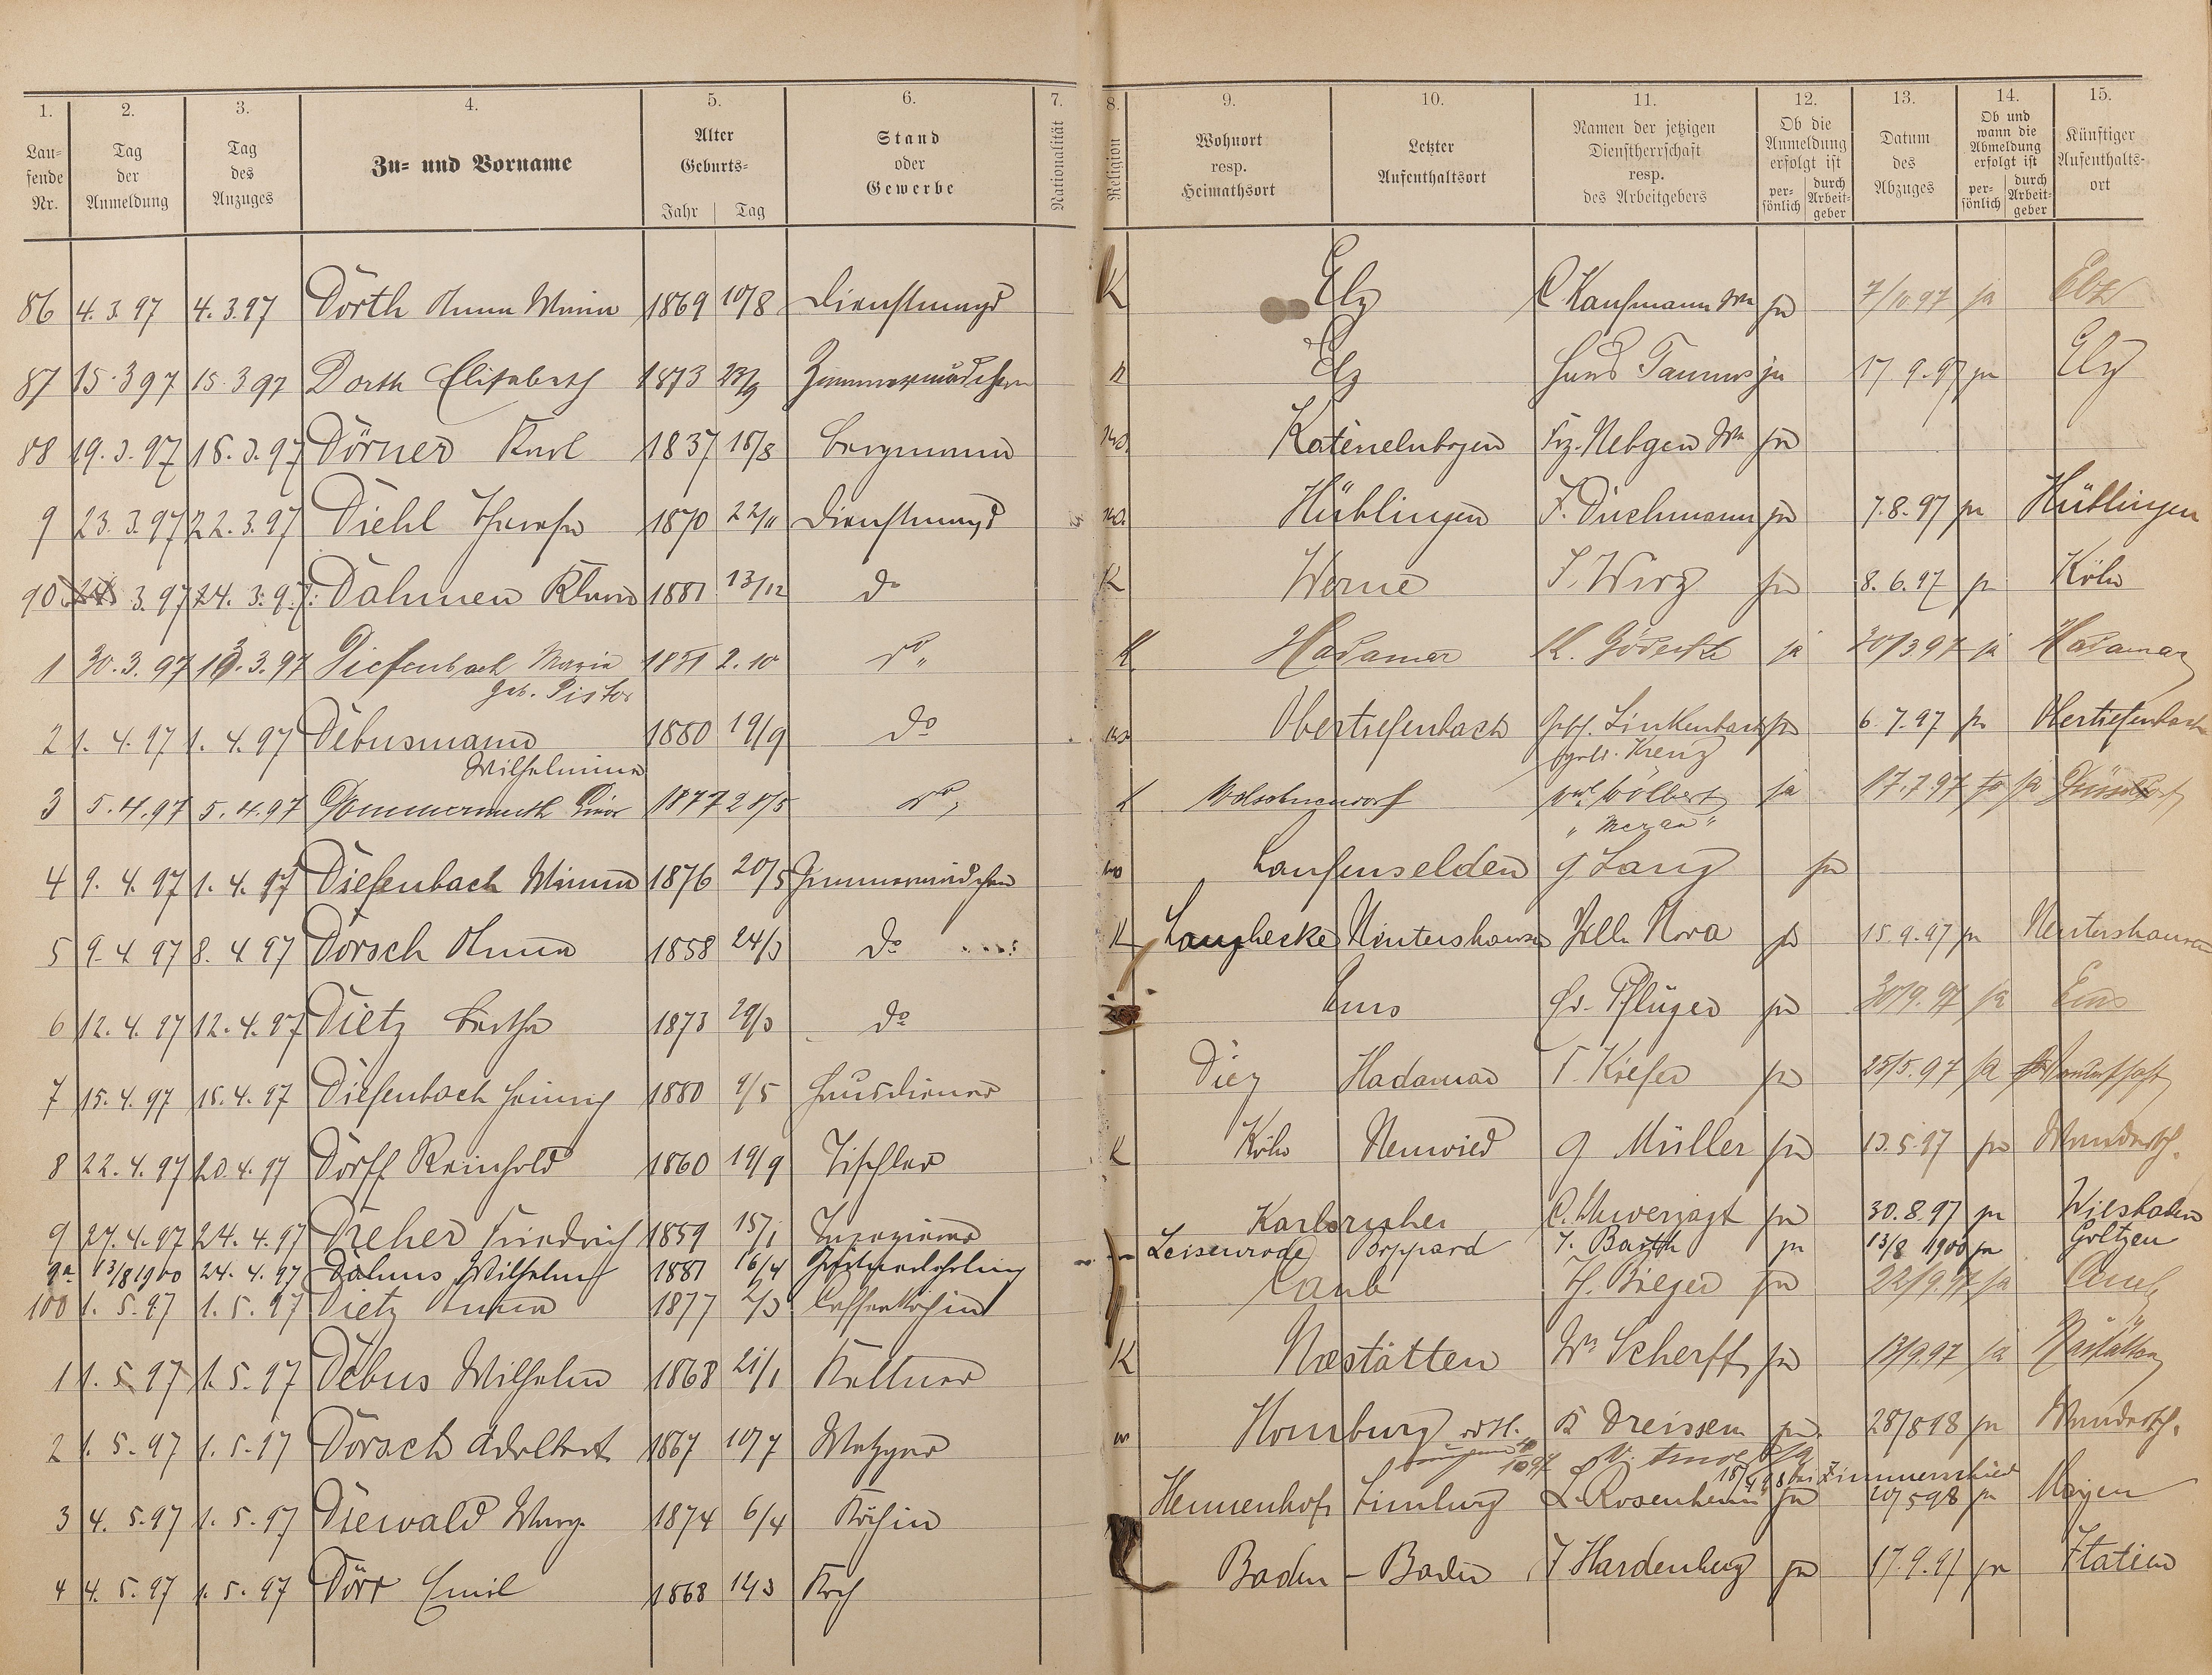 1. 2. 3. 4. 5. 6. 7. 8. 9. 10. 11. 12. 13. 14. 15.
Laufende Nr. Tag der Anmeldung Tag des Anzuges Zu- und Vorname Alter Geburts- Jahr Tag Stand oder Gewerbe Nationalität Religion Wohnort resp. Heimathsort Letzter Aufenthaltsort Namen der jetzigen Dienstherrschaft resp. des Arbeitgebers Ob die Anmeldung erfolgt ist persönlich durch Arbeitgeber Datum des Abzuges Ob und wann die Abmeldung erfolgt ist persönlich durch Arbeitgeber Künftiger Aufenthaltsort
86 4.3.97 4.3.97 Dörth Anna Maria 1869 10/8 Dienstmagd K Elz C Kaufmann Ww ja 7/10.97 ja Elz
87 15.3 97 15.3 97 Dorth Elisabeth 1873 23/9 Zimmermädchen K Elz Haus Taunus ja 17.9.97 ja Elz
88 19.3.97 18.3.97 Dörner Karl 1837 18/8 Bergmann Katenelnbogen Frz. Nebgen Ww ja
9 23.3.97 22.3.97 Diehl Therese 1870 22/11 Dienstmagd Hüblingen F. Duchmann ja 7.8.97 ja Hüblingen
90 3.97 24.3.97 Dahmen Klara 1881 13/12 do K Werne J. Wirz ja 8.6.97 ja Köln
1 30.3.97 3.97 Diefenbach Maria 1851 2.10 do " K Hadamar K. Gödecke ja 30/3 97 ja Hadamar
geb. Pistor
2 1.4.97 1.4.97 Debusmann 1880 19/9 do Obertiefenbach Linkenbach ja 6.7.97 ja Obertiefenbach
Wilhelmine Kreuz
3 5.4.97 5.4.97 Dommermuth 1877 28/5 do " K Wölbert ja 17.7.97 ja Düsseldorf
" Meran "
4 9.4.97 1.4.97 Diefenbach Minna 1876 20/5 Zimmermädchen Laufenselden G Lang ja
5 9.4 97 8.4 97 Dorsch Anna 1858 24/3 do K Langhecke Nentershausen Villa Nova ja 15.9.97 ja Nentershausen
6 12.4.97 12.4.97 Dietz Bertha 1873 29/3 do Ems Pflüger ja 30/9.97 ja Ems
7 15.4.97 15.4.97 Diefenbach Heinrich 1880 9/5 Hausdiener Diez Hadamar T. Kiefer ja 25/5.97 ja
8 22.4.97 20.4.97 Dörff Reinhold 1860 19/9 Tischler K Köln Neuwied G Müller ja 13.5.97 ja Wandersch.
9 27.4.97 24.4.97 Dreher Friedrich 1859 15/1 Karlsruhe C. Unverzagt ja 30.8.97 ja Wiesbaden
9a 13/8 1900 24.4.97 Dahms Wilhelm 1881 16/4 Leisenrode Boppard J. Barth ja 13/8 1900 ja Goltzen
100 1.5.97 1.5.97 Dietz Anna 1877 2/3 Kaffeeköchin Caub H. Bieger ja 22/9.97 ja Caub
1 1.5 97 1.5.97 Debus Wilhelm 1868 21/1 Kellner K Nastätten Wm Scherff ja 13/9.97 ja Nastätten
2 1.5.97 1.5.97 Dorsch Adelbert 1867 10/7 Metzger Homburg v.d.H. B Dreissen ja 28/8 98 ja Wandersch.
18/4 98 bei Zimmerschied
3 4.5.97 1.5.97 Diewald Marg. 1874 6/4 Köchin Hennenhof Limburg L. Rosenheim ja 20/5 98 ja Mayen
4 4.5.97 1.5.97 Dörr Emil 1868 12/3 Koch Baden - Baden J Hardenberg ja 17.9.97 ja Italien